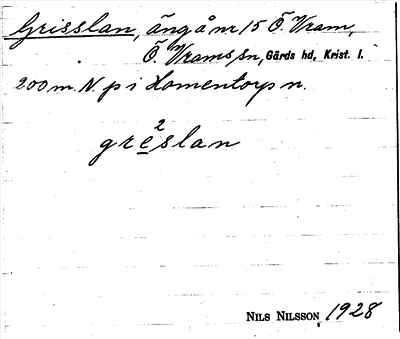 Grisslan, äng å nr 15 Ö. Vram,
Ö. Vrams sn, Gärds hd, Krist. l.
200 m. N. p i Lomentorp n.
gre²slan
NILS NILSSON, 1928